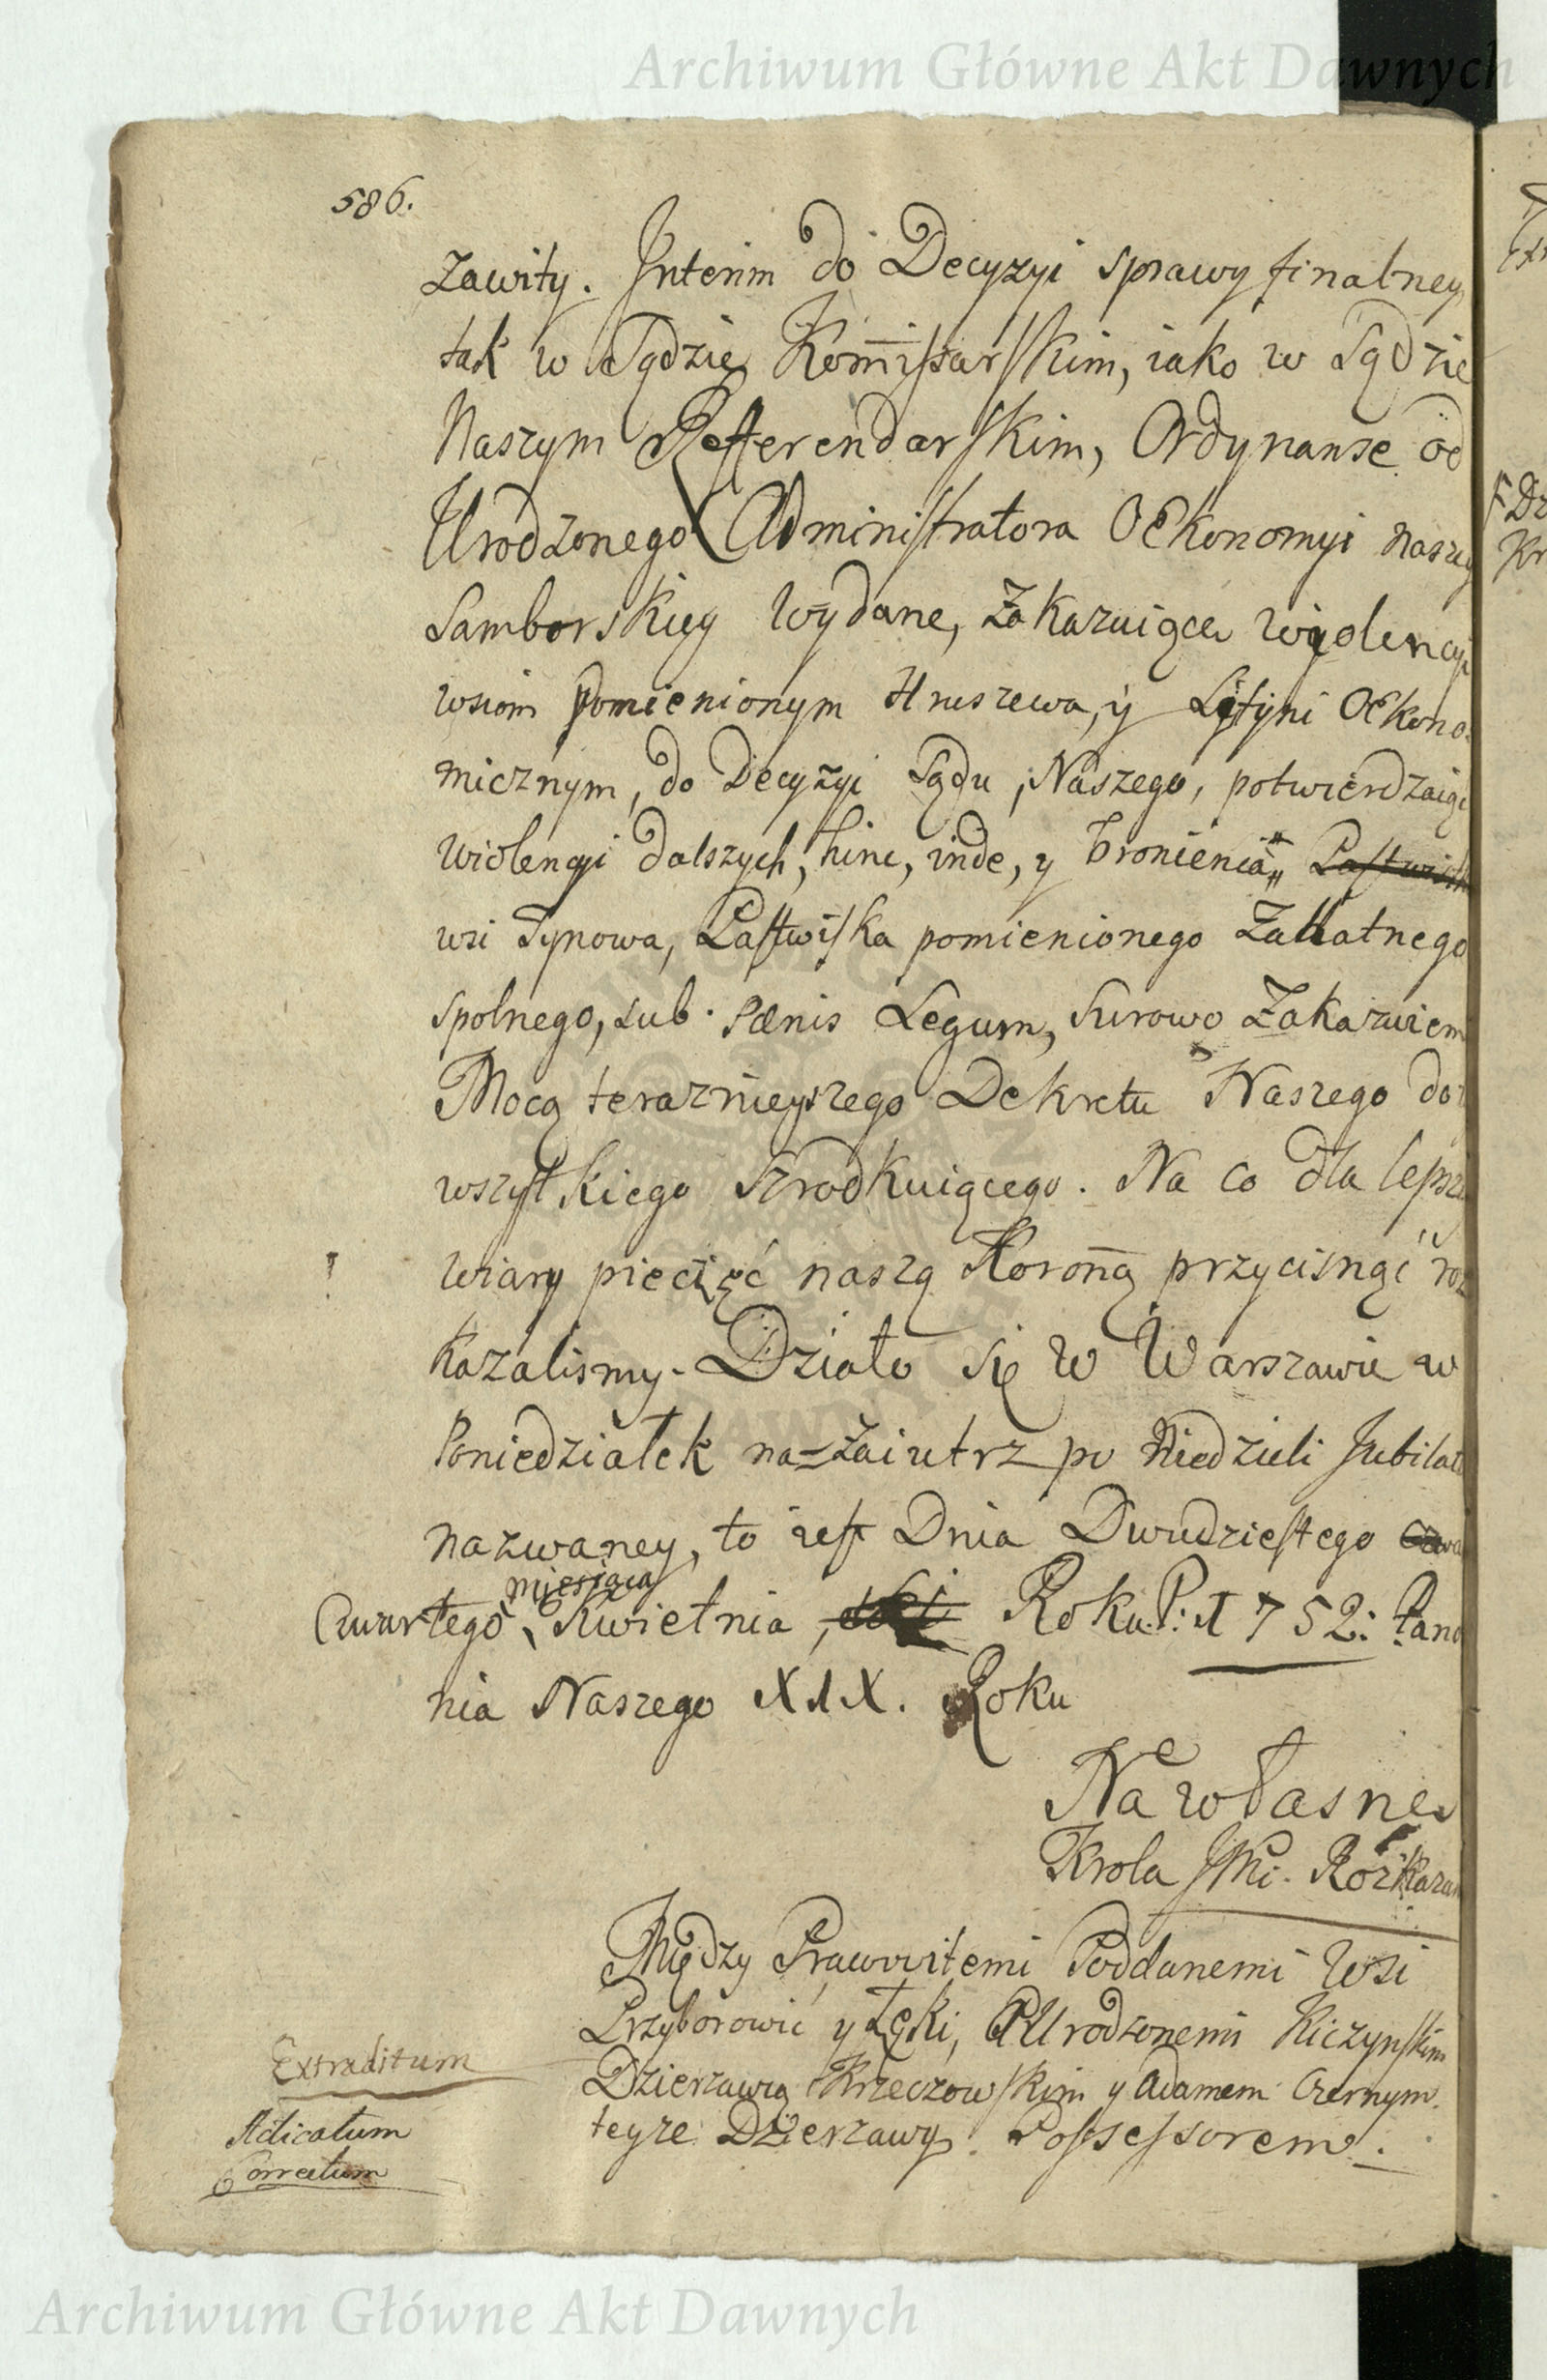 Archiwum Główne Akt Dawnych
586.
zawity. Interim do Decyzyi sprawy finalney
tak w Sądzie Kom̄issarskim, iako w Sądzie
Naszym Refferendarskim, Ordynanse od
Urodzonego Administratora Oekonomyi naszey
Samborskiey wydane, zakazuiące wiolencyi
wsiom pomienionym Hruszewa, y Lityni Oekono
micznym, do Decyzyi Sądu Naszego, potwierdzaiąc
wiolencyi dalszych, hinc, inde, y bronienia Pastwisk
wsi Tynowa, Pastwiska pomienionego Zallatnego
spolnego, sub pœnis Legum, surowo zakazuiem
Mocą teraznieyszego Dekretu Naszego do
wszystkiego szrodkuiącego. Na co dla lepsze
wiary pieczęć naszą Koron̄ą przycisnąć roz
kazalismy. Działo się w Warszawie w
Poniedziałek na=zaiutrz po Niedzieli Jubilate
nazwaney, to iest Dnia Dwudziestego Czwa
miesiąca
Czwartego Kwietnia, Roku P: 1752: Pano
nia Naszego XIX. Roku
Na własne
Krola JMci. Rozkazan
Między Prawowitemi Poddanemi Wsi
Przyborowic y Łęki, a Urodzonemi Kiczynskim
Dzierzawcą Krzeczowskim y Adamem Czernym
teyze Dzierzawy Possessorem.
Extraditum
Adicatum
Correctum
Archiwum Główne Akt Dawnych